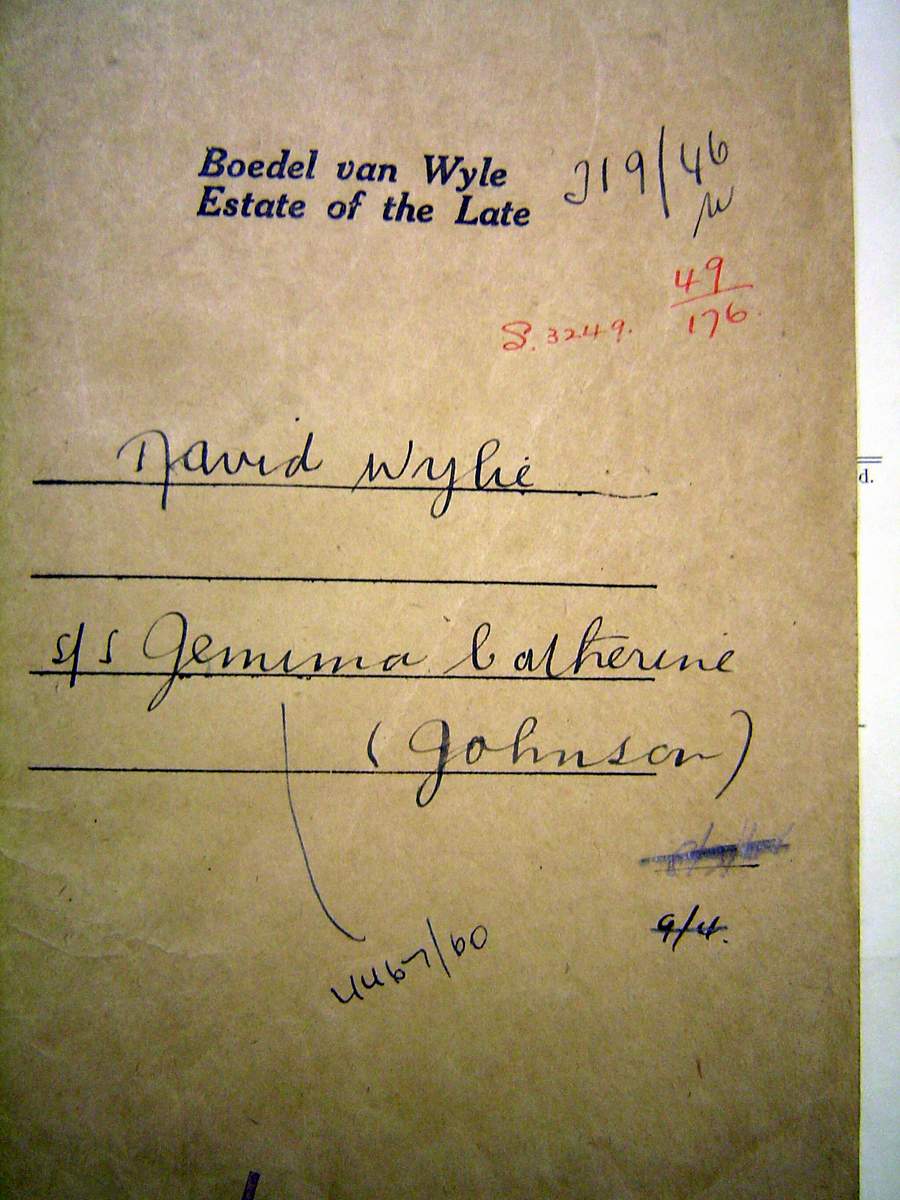 Boedel van Wyle
Estate of the Late
319/46
49
176
S. 3249.
David Wylie
s/s Jemima Catherine
(Johnson)
9/4.
4467/60
d.